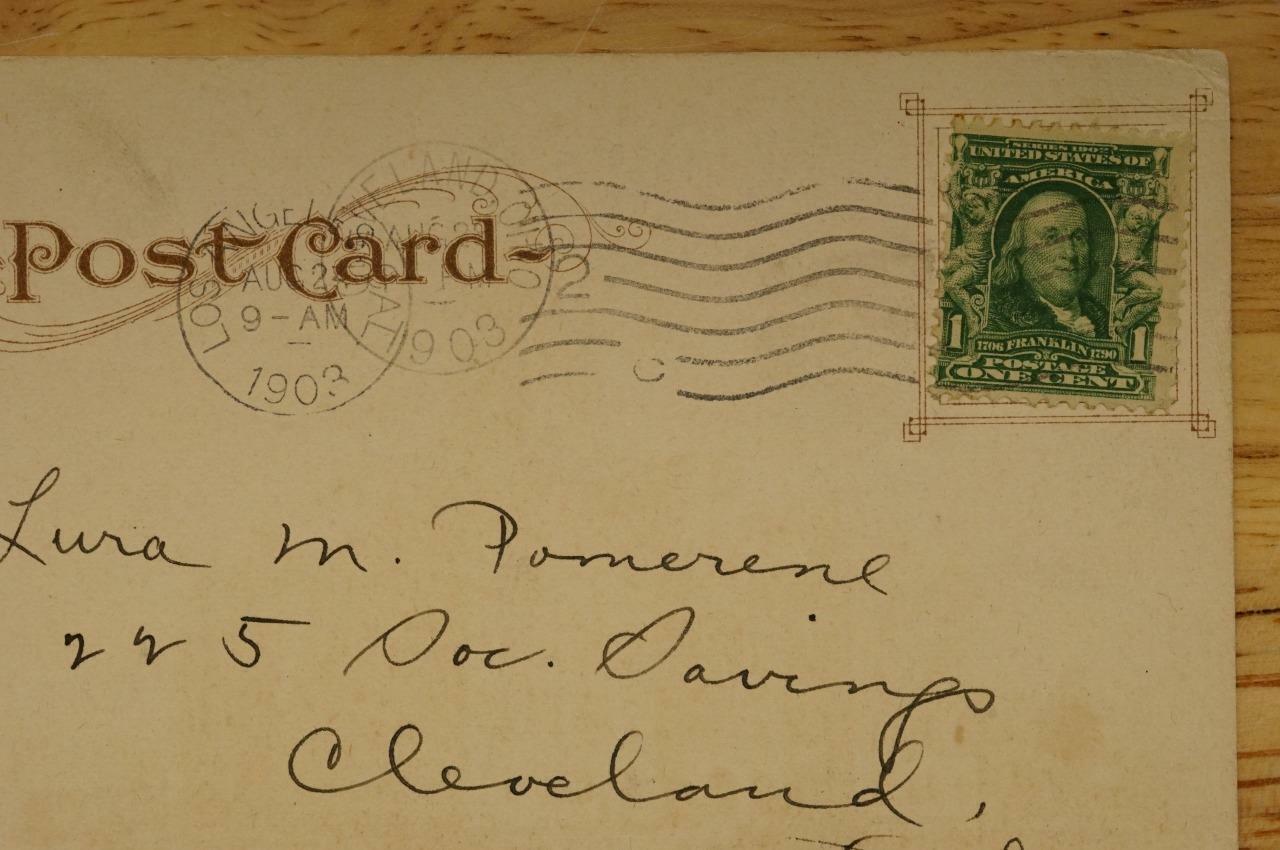 Post Card
LOS ANGELES CAL
AUG 2
9-AM
1903
CLEVELAND, OHIO
AUG 2
1903
SERIES 1902
UNITED STATES OF
AMERICA
1706 FRANKLIN 1790
1 1
POSTAGE
ONE CENT
Lura M. Pomerene
225 Soc. Savings
Cleveland,